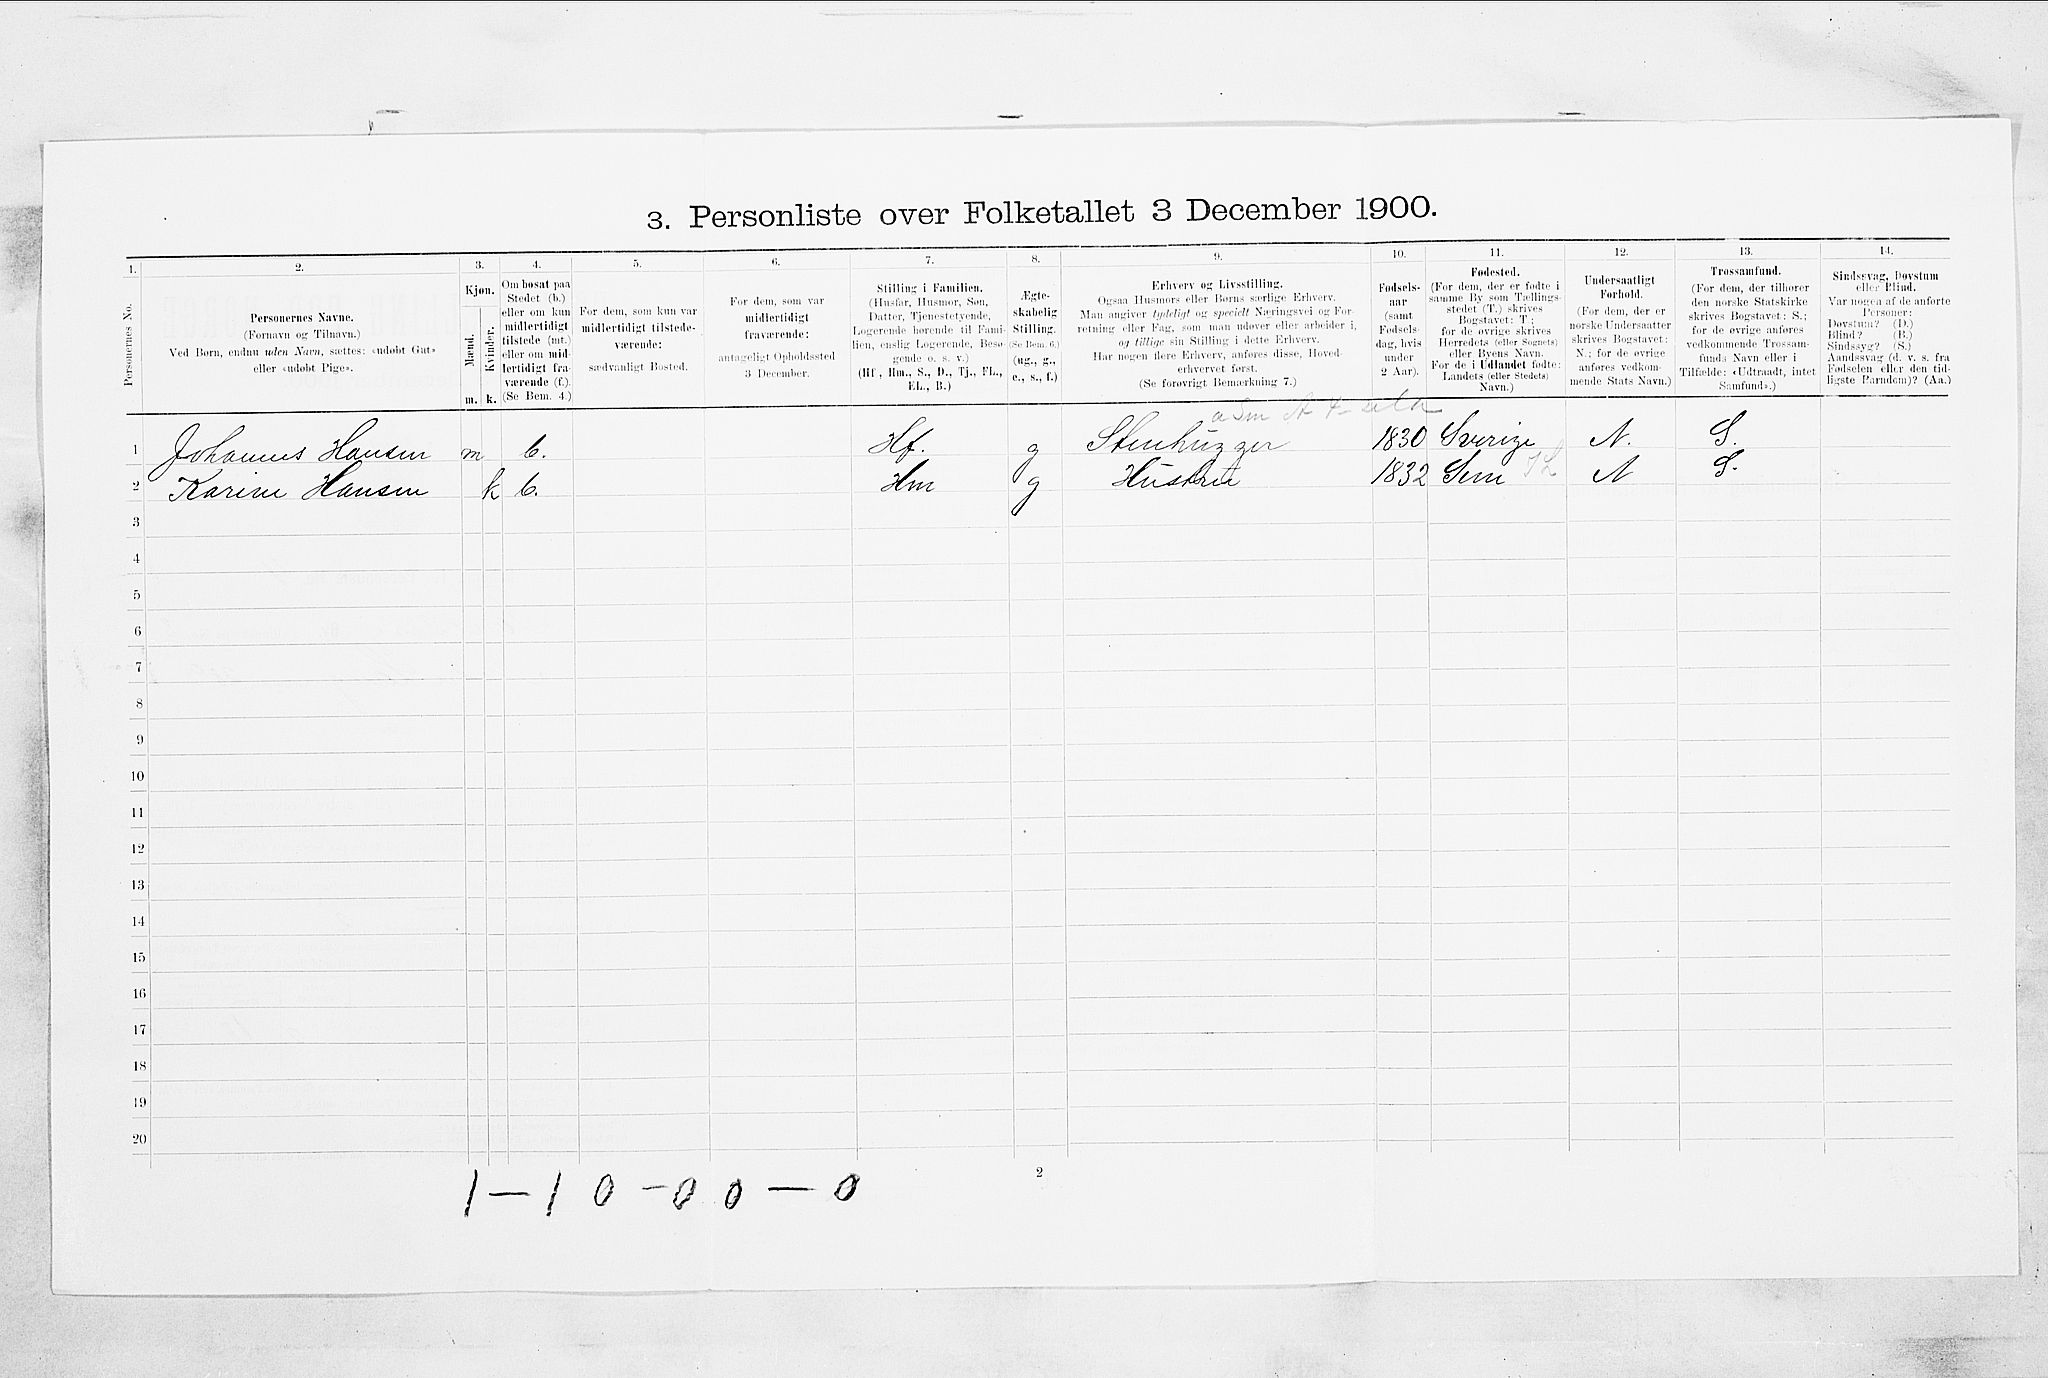 3. Personliste over Folketallet 3 December 1900.
1. 2. 3. 4. 5. 6. 7. 8. 9. 10. 11. 12. 13. 14.
Personernes No.
Personernes Navne.
(Fornavn og Tilnavn.)
Ved Børn, endnu uden Navn, sættes: «udøbt Gut»
eller «udøbt Pige».
Kjøn.
Mænd.
Kvinder.
m. k.
Om bosat paa
Stedet (b.)
eller om kun
midlertidigt
tilstede (mt.)
eller om mid-
lertidigt fra-
værende (f.).
(Se Bem. 4.)
For dem, som kun var
midlertidigt tilstede-
værende:
sædvanligt Bosted.
For dem, som var
midlertidigt
fraværende:
antageligt Opholdssted
3 December.
Stilling i Familien.
(Husfar, Husmor, Søn,
Datter, Tjenestetyende,
Logerende hørende til Fami-
lien, enslig Logerende, Besø-
gende o. s. v.)
(Hf., Hm., S., D., Tj., FL.,
EL., B.)
Ægte-
skabelig
Stilling.
(Se Bem. 6.)
(ug., g.,
e., s., f.)
Erhverv og Livsstilling.
Ogsaa Husmors eller Børns særlige Erhverv.
Man angiver tydeligt og specielt Næringsvei og For-
retning eller Fag, som man udøver eller arbeider i,
og tillige sin Stilling i dette Erhverv.
Har nogen flere Erhverv, anføres disse, Hoved-
erhvervet først.
(Se forøvrigt Bemærkning 7.)
Fødsels-
aar
(samt
Fødsels-
dag, hvis
under
2 Aar).
Fødested.
(For dem, der er fødte i
samme By som Tællings-
stedet (T.) skrives
Bogstavet: T;
for de øvrige skrives
Herredets (eller Sognets)
eller Byens Navn.
For de i Udlandet fødte:
Landets (eller Stedets)
Navn.)
Undersaatligt
Forhold.
(For dem, der er
norske Undersaatter
skrives Bogstavet:
N.; for de øvrige
anføres vedkom-
mende Stats Navn.)
Trossamfund.
(For dem, der tilhører
den norske Statskirke
skrives Bogstavet: S.;
for de øvrige anføres
vedkommende Trossam-
funds Navn eller i
Tilfælde: «Udtraadt, intet
Samfund».)
Sindssvag, Døvstum
eller Blind.
Var nogen af de anførte
Personer:
Døvstum? (D.)
Blind? (B.)
Sindssyg? (S.)
Aandssvag (d. v. s. fra
Fødselen eller den tid-
ligste Barndom)? (Aa.)
1 Johannes Hansen m b. Hf. g Stenhugger 1830 Sverige N. S.
2 Karine Hansen k b. Hm g Hustru 1832 Sem N S.
3
4
5
6
7
8
9
10
11
12
13
14
15
16
17
18
19
20
1 – 1 0 – 0 0 – 0
2